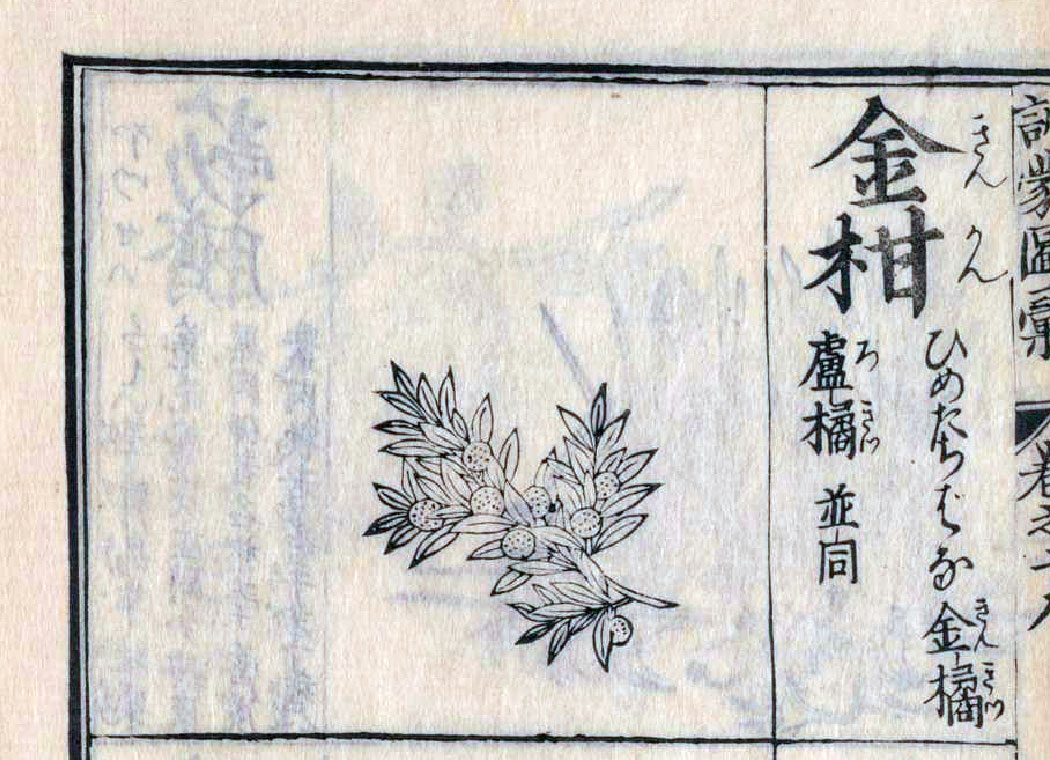 訓蒙圖彙 卷之十八
きんかん
金柑
ひめたちばな 金橘
きんきつ
盧橘 並同
ろきつ